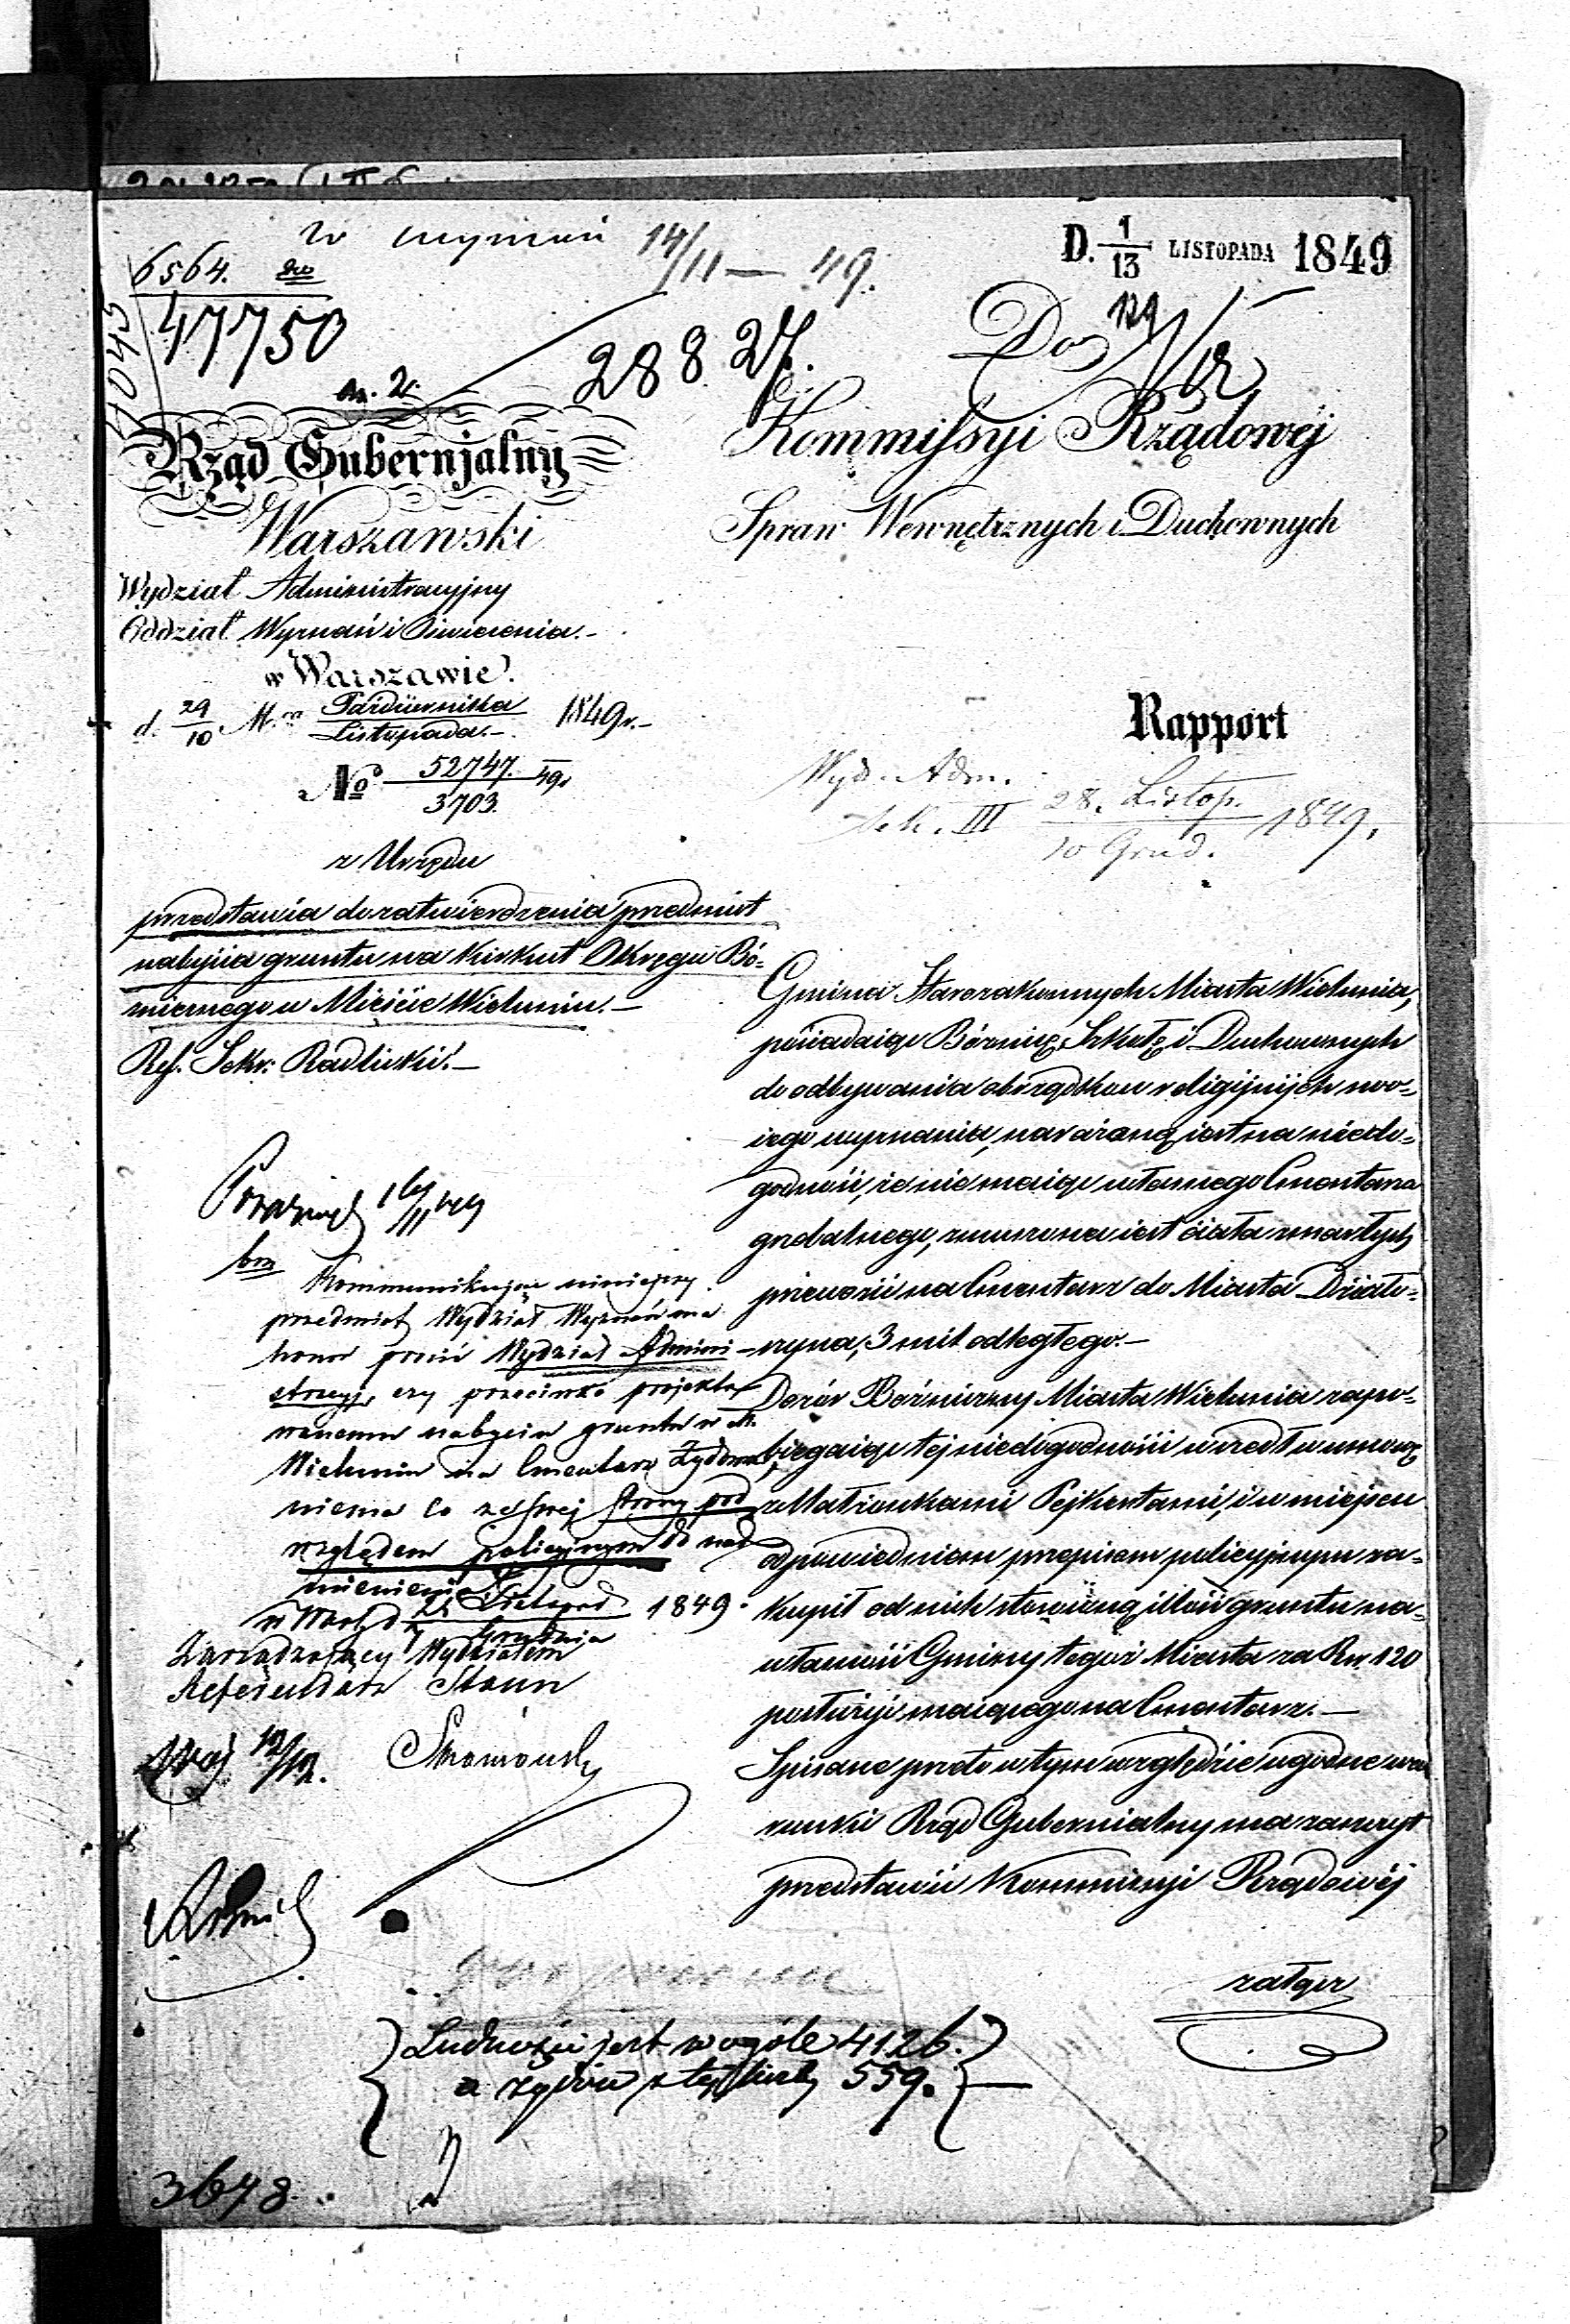 14/11 — 49.
D. 1/13 LISTOPADA 1849
6564.
47750
28827.
Do
Kommissyi Rządowéj
Spraw Wewnętrznych i Duchownych
Rząd Gubernjalny
Warszawski
Wydział Administracyjny
Oddział Wyznań i Oświecenia.-
w Warszawie.
d. 29/10 M.ca Października/Listopada.- 1849r.-
No 52747./3703. 49r
z Urzędu
przedstawia do zatwierdzenia przedmiot
nabycia gruntu na Kirkut Okręgu Bó-
źniczego w Mieście Wieluniu.-
Ref. Sekr: Radlicki.-
Rapport
Wyd. Adm.
Sek. III 28. Listop./10 Grud. 1849.
Gmina Starozakonnych Miasta Wielunia,
posiadaiąc Bóżnicę, Szkołę i Duchownych
do odbywania obrządków religijnych swo-
iego wyznania, narażoną iest na niedo-
godność, że nie maiąc własnego Cmentarza
grzebalnego, zmuszona iest ciała zmarłych
przewozić na Cmentarz do Miasta Działo-
szyna, 3 mil odległego.-
Dozór Bóźniczny Miasta Wielunia zapo-
biegaiąc tej niedogodności wszedł w umowę
z Małżonkami Pejkertami, i w miejscu
odpowiedniem przepisom policyjnym za-
kupił od nich stosowną ilość gruntu na
własność Gminy tegoż Miasta za Rsr. 120
posłużyć maiącego na Cmentarz.-
Spisane przeto w tym względzie ugodne wa-
runki Rząd Gubernialny ma zaszczyt
przedstawić Kommissyi Rządowéj
załącz
Kommunikując niniejszy
przedmiot Wydział Wyznań ma
honor prosić Wydział Admini-
stracyj, czy przeciwko projekto-
wanemu nabyciu gruntu w M.
Wieluniu na Cmentarz Żydowski,
niema co ze swej strony pod
względem policyjnym do nad-
mienienia
w Warsz. d. Listopad/Grudnia 1849.
Zarządzający Wydziałem
Referendarz Stanu
Ludności jest w ogóle 4126.
a żydów z tej liczby 559.
3648.